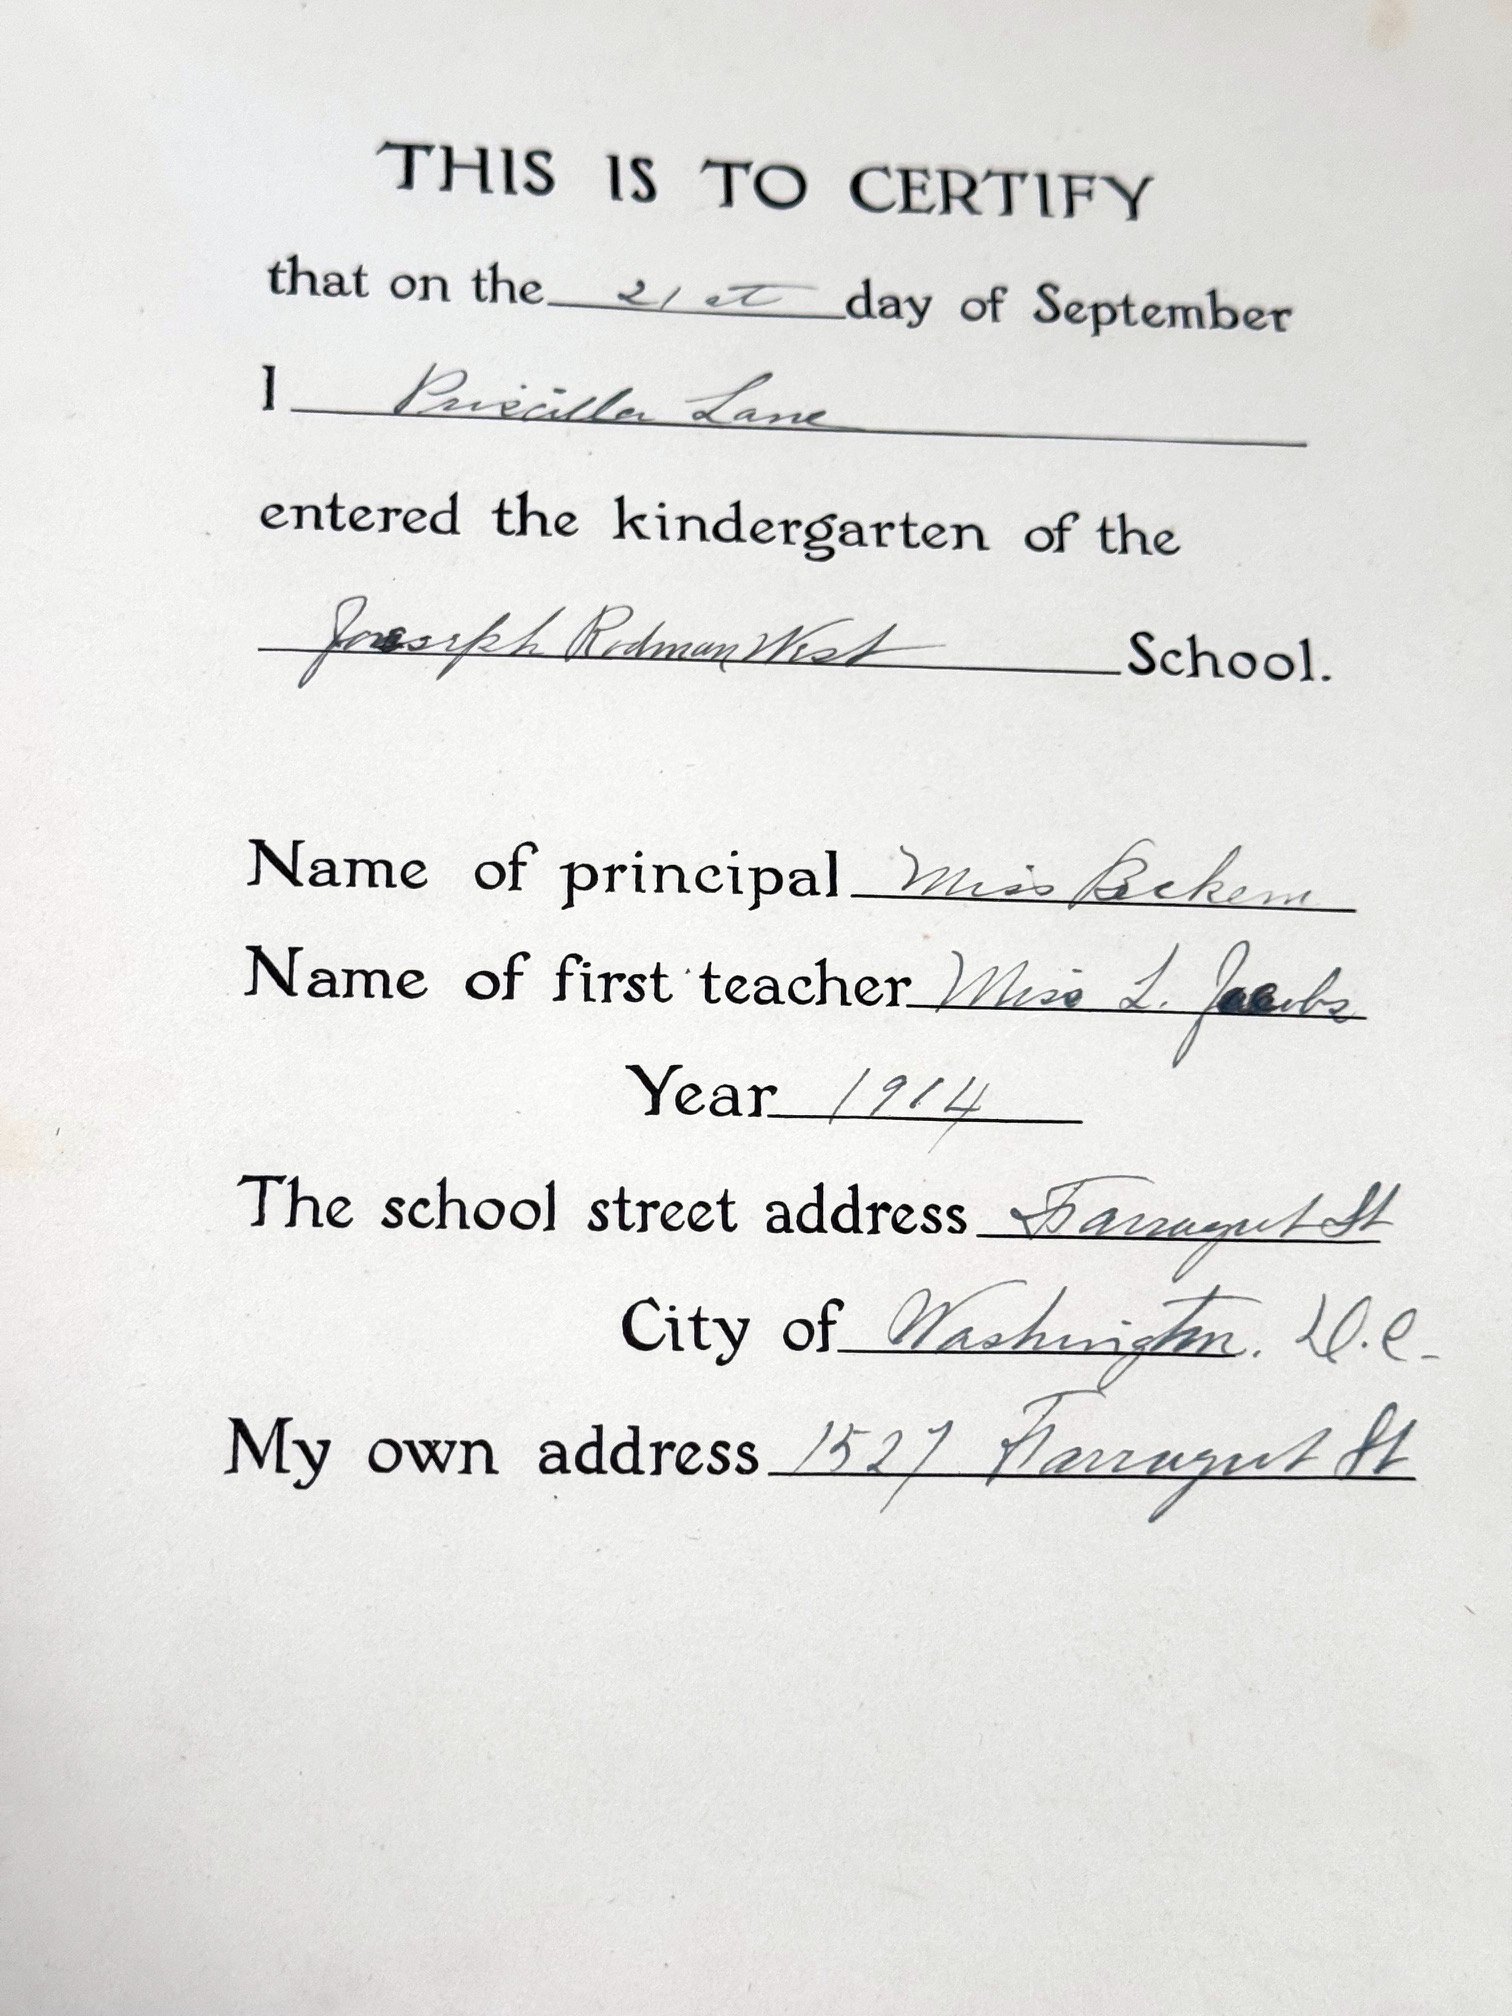 THIS IS TO CERTIFY
that on the 21st day of September
I Priscilla Lane
entered the kindergarten of the
Joseph Rodman West School.
Name of principal Miss
Name of first teacher Miss L. Jacobs
Year 1914
The school street address Farragut St
City of Washington. D.C.
My own address 1527 Farragut St